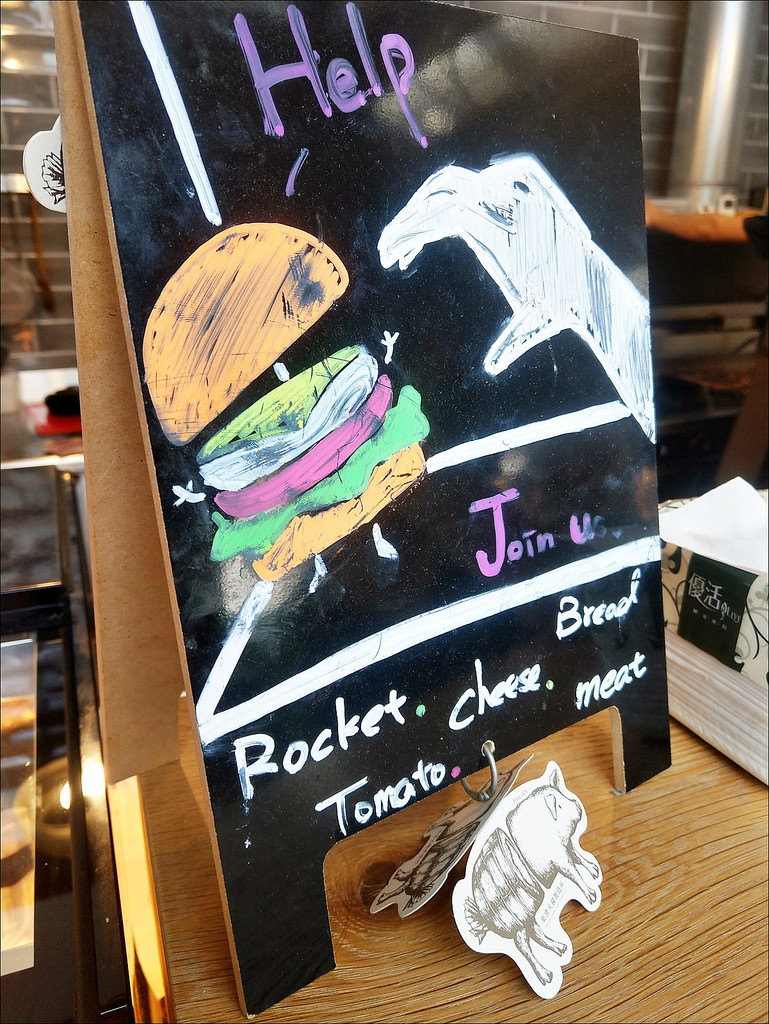 Help
Join us.
Bread
Rocket. cheese. meat
Tomato.
優活